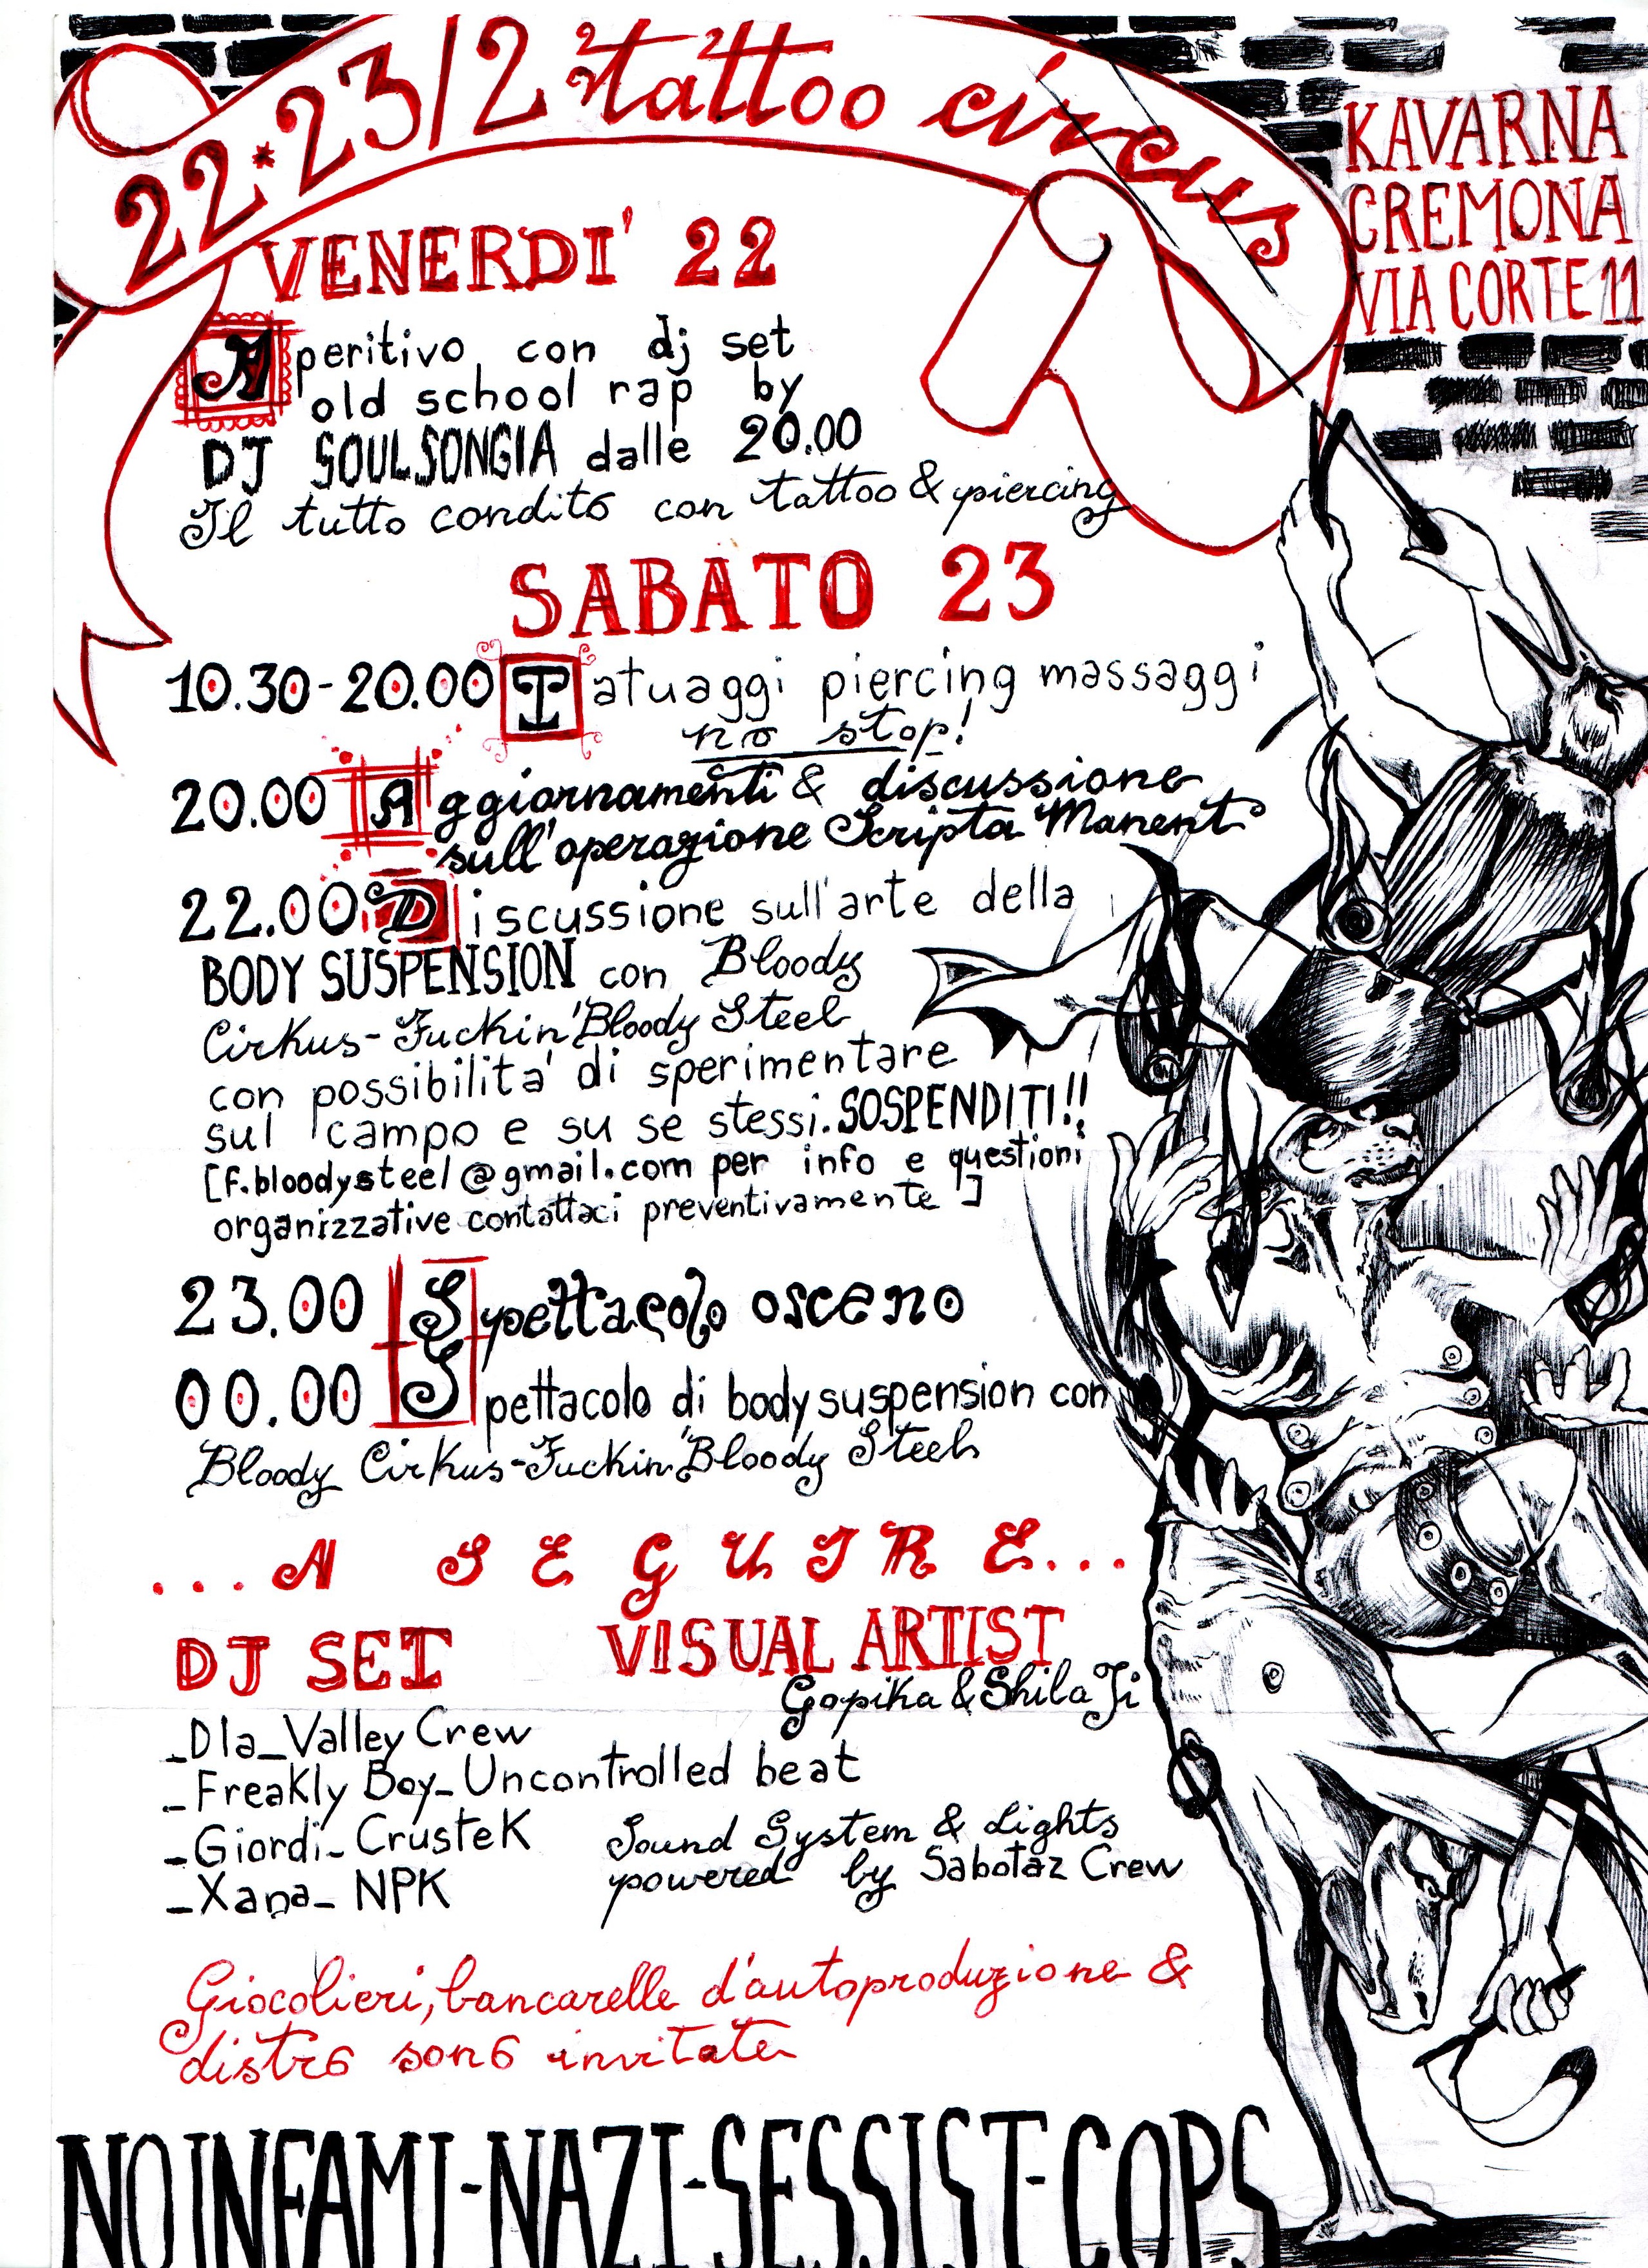 22*23/2 tattoo circus
KAVARNA
CREMONA
VIA CORTE 11
VENERDI' 22
Aperitivo con dj set
old school rap by
DJ SOULSONGIA dalle 20.00
Il tutto condito con tattoo & piercing
SABATO 23
10.30-20.00 Tatuaggi piercing massaggi
no stop!
20.00 Aggiornamenti & discussione
sull'operazione Scripta Manent
22.00 Discussione sull'arte della
BODY SUSPENSION con Bloody
Cirkus-Fuckin'Bloody Steel
con possibilita' di sperimentare
sul campo e su se stessi. SOSPENDITI!!
[f.bloodysteel@gmail.com per info e questioni
organizzative contattaci preventivamente]
23.00 Spettacolo osceno
00.00 Spettacolo di body suspension con
Bloody Cirkus-Fuckin'Bloody Steel
...A SEGUIRE...
DJ SET VISUAL ARTIST
Gopika & Shila Ji
_Dla_Valley Crew
_Freakly Boy_Uncontrolled beat
_Giordi_CrusteK
_Xana_NPK
Sound System & Lights
powered by Sabotaz Crew
Giocolieri, bancarelle d'autoproduzione &
distro sono invitate
NO INFAMI-NAZI-SESSIST-COPS